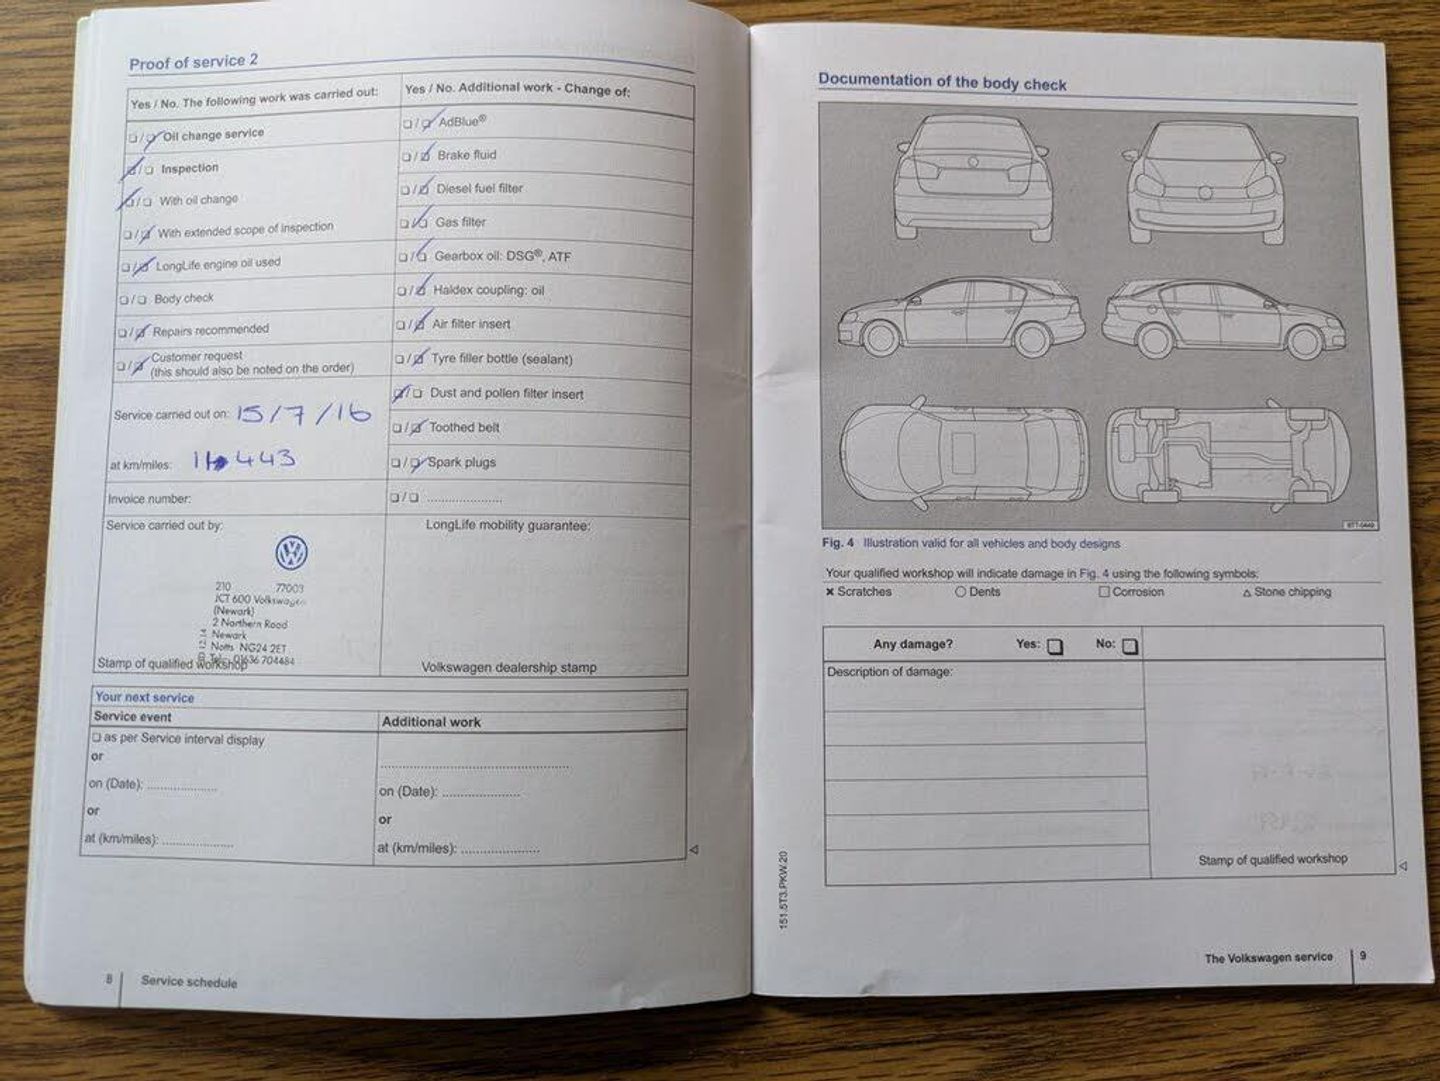 Proof of service 2
Yes / No. The following work was carried out:
❏/❏ Oil change service
❏/❏ Inspection
❏/❏ With oil change
❏/❏ With extended scope of inspection
❏/❏ LongLife engine oil used
❏/❏ Body check
❏/❏ Repairs recommended
❏/❏ Customer request
(this should also be noted on the order)
Service carried out on: 15/7/16
at km/miles: 11 443
Invoice number:
Yes / No. Additional work - Change of:
❏/❏ AdBlue®
❏/❏ Brake fluid
❏/❏ Diesel fuel filter
❏/❏ Gas filter
❏/❏ Gearbox oil: DSG®, ATF
❏/❏ Haldex coupling: oil
❏/❏ Air filter insert
❏/❏ Tyre filler bottle (sealant)
❏/❏ Dust and pollen filter insert
❏/❏ Toothed belt
❏/❏ Spark plugs
❏/❏ ......................
Service carried out by:
210 77003
JCT 600 Volkswagen
(Newark)
2 Northern Road
Newark
Notts NG24 2ET
Tel: 01636 704484
Stamp of qualified workshop
LongLife mobility guarantee:
Volkswagen dealership stamp
Your next service
Service event
❏ as per Service interval display
or
on (Date): ....................
or
at (km/miles): ....................
Additional work
......................................................
on (Date): ......................
or
at (km/miles): ......................
8 Service schedule
Documentation of the body check
Fig. 4 Illustration valid for all vehicles and body designs
Your qualified workshop will indicate damage in Fig. 4 using the following symbols:
× Scratches ○ Dents □ Corrosion △ Stone chipping
Any damage? Yes: ❏ No: ❏
Description of damage:
Stamp of qualified workshop
151.5T3.PKW.20
The Volkswagen service 9